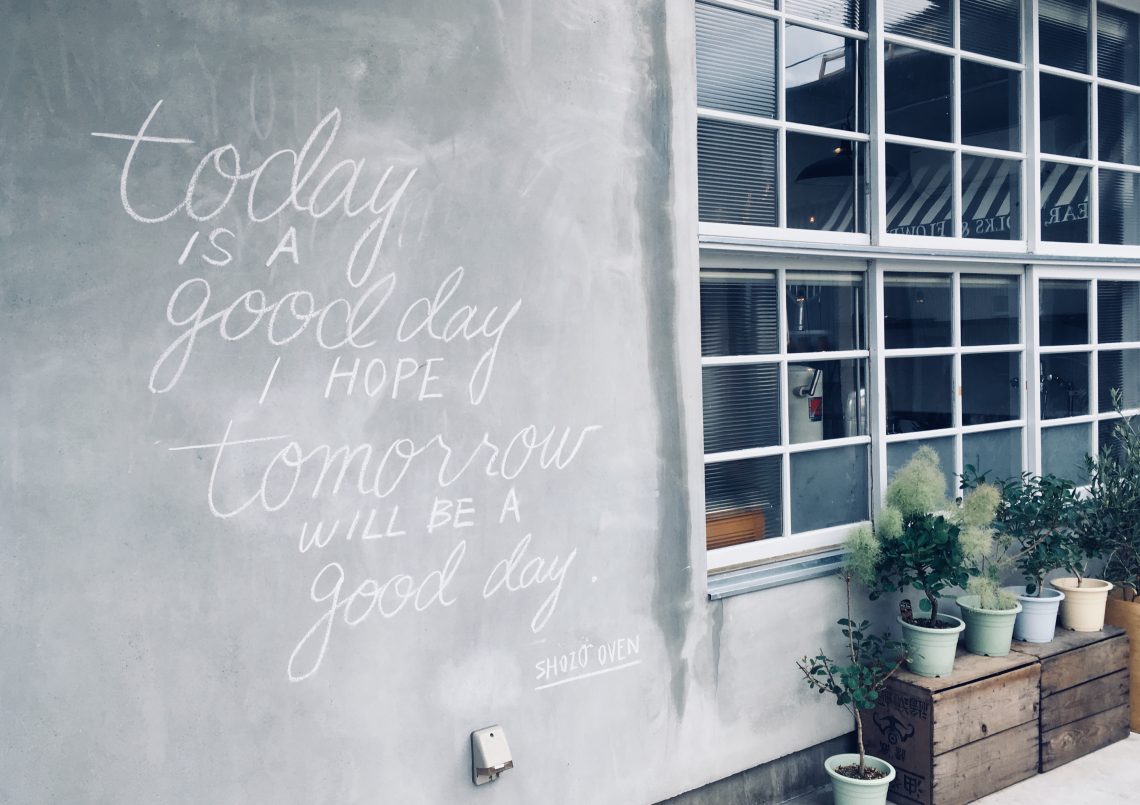 today
IS A
good day
I HOPE
tomorrow
WILL BE A
good day.
SHOZO OVEN
EAR,
OLKS & FLOWE